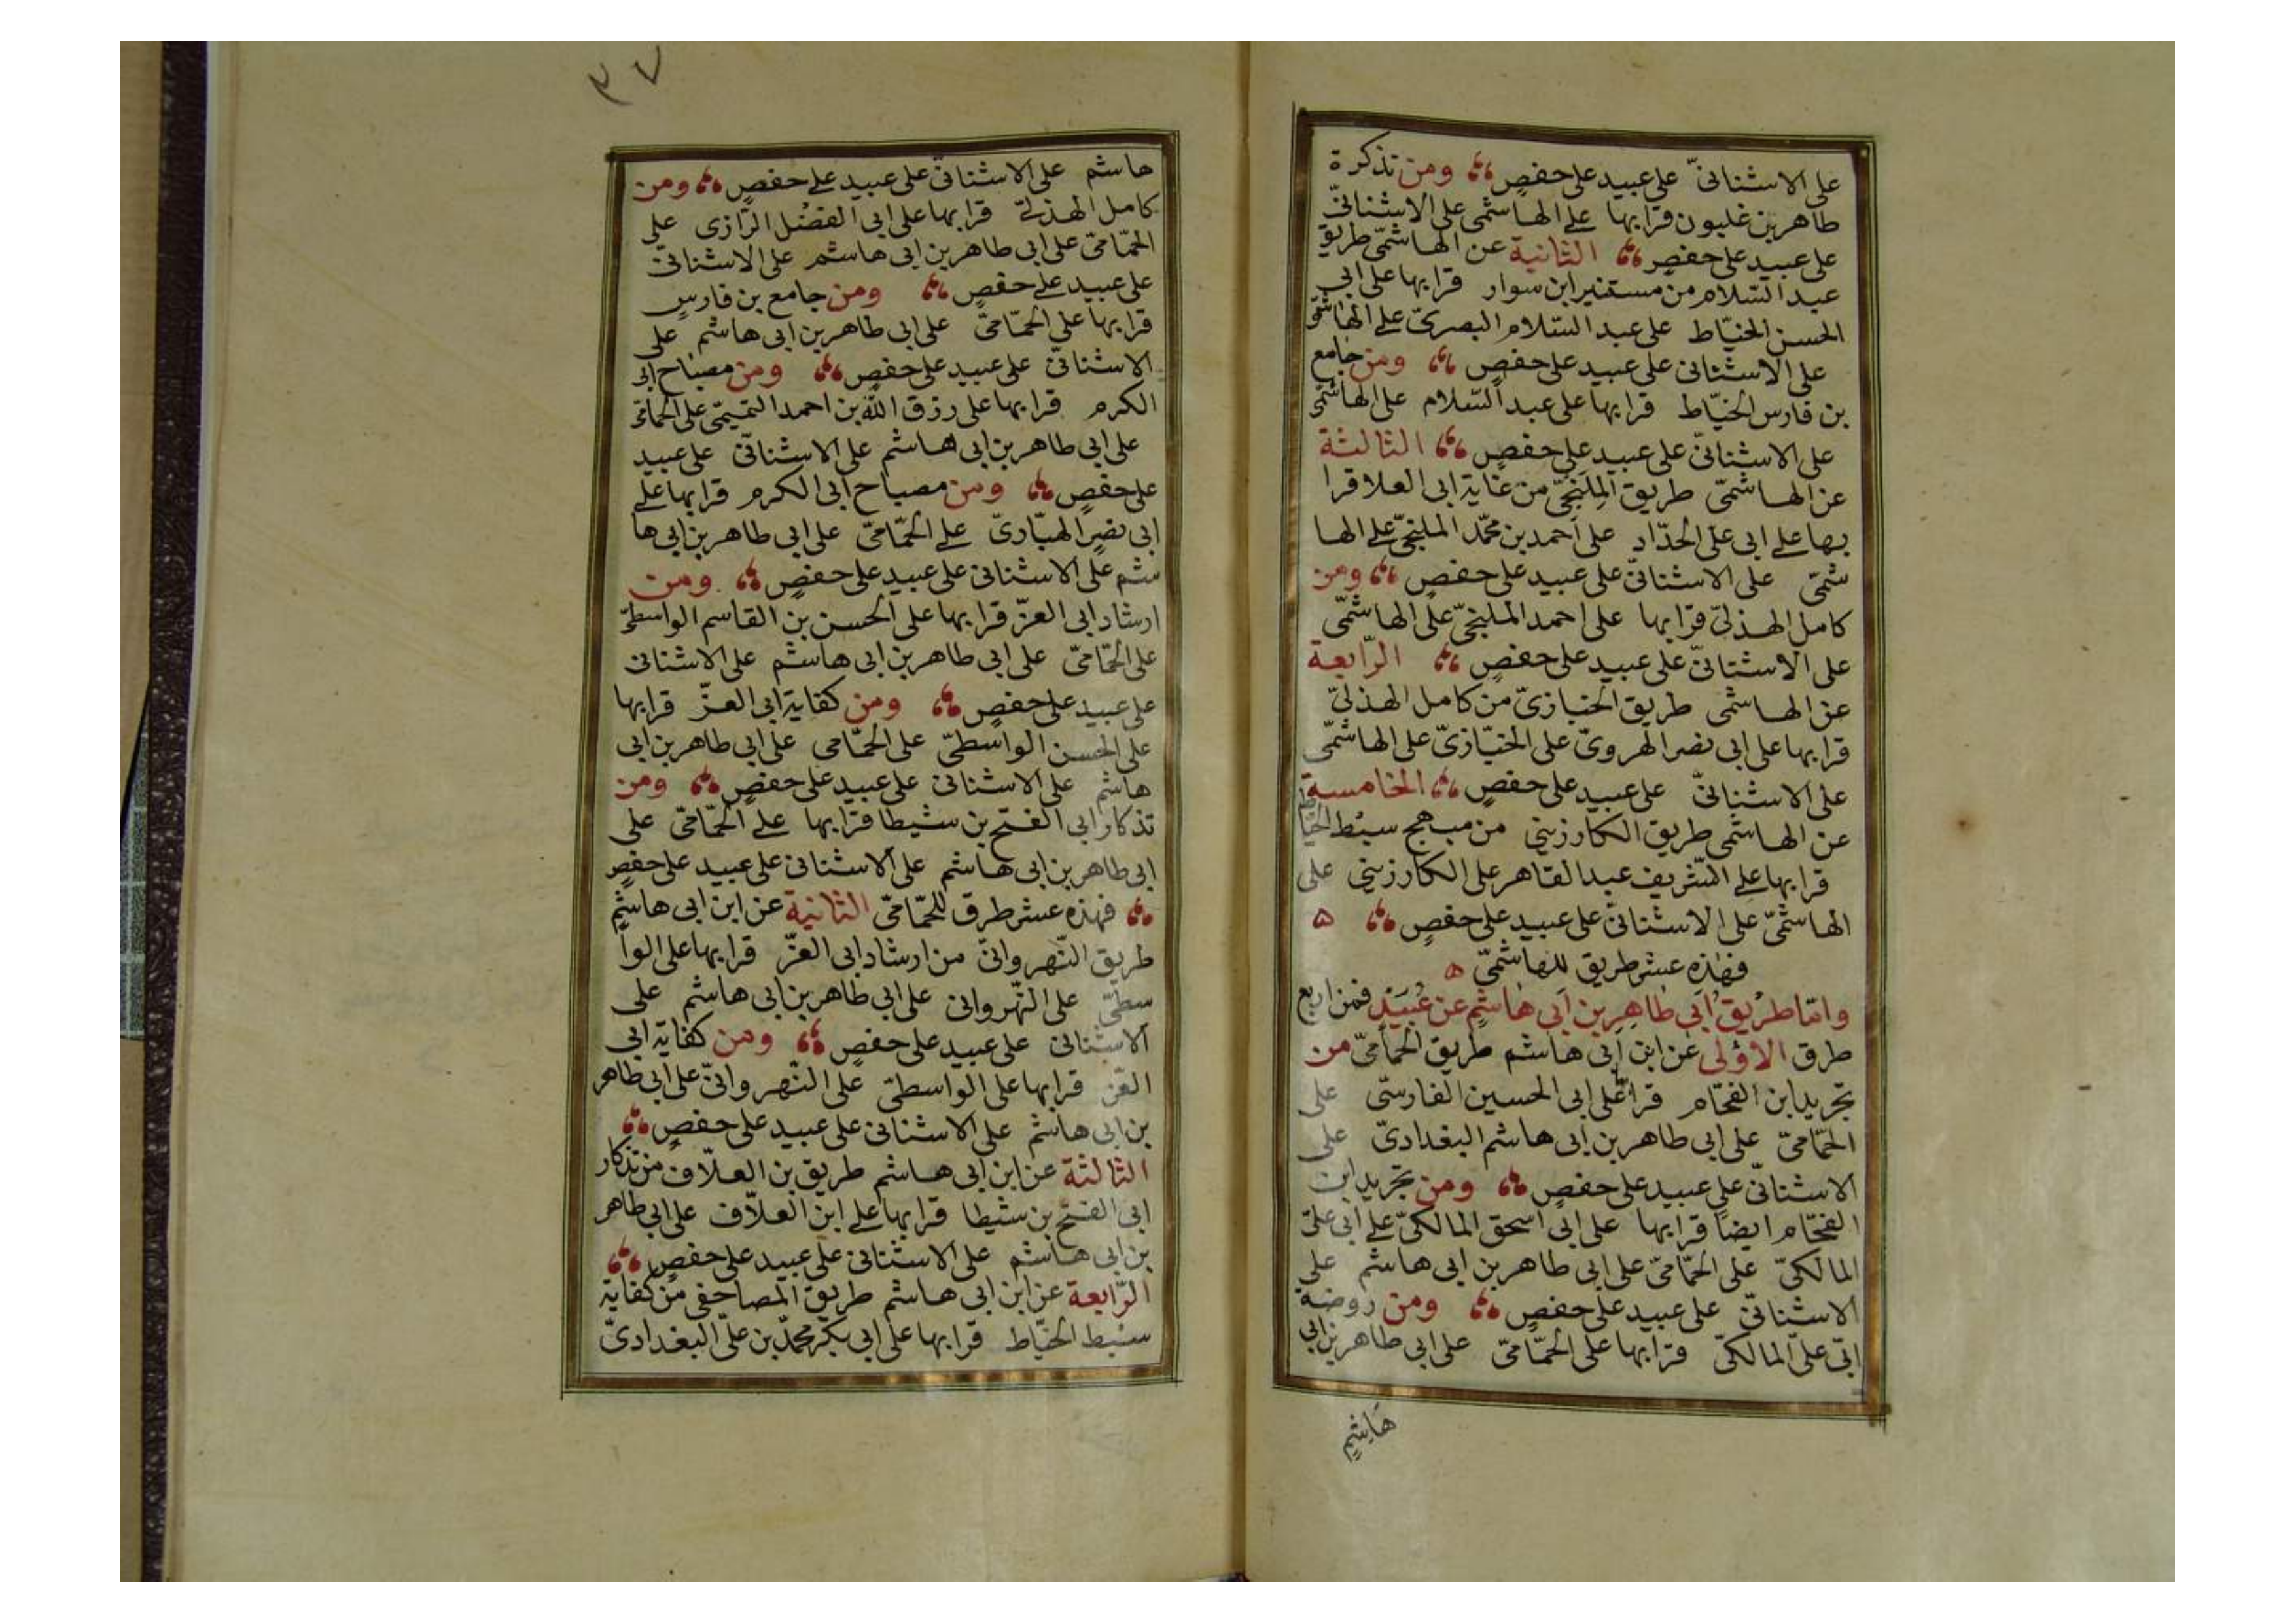 على الاشنانىّ على عبيد على حفصٍ ومن تذكرة
طاهر بن غلبون قرا بها على الهاشمى على الاشنانىّ
على عبيد على حفصٍ الثانية عن الهاشمىّ طريق
عبد السّلام من مستنير ابن سوار قرا بها على ابى
الحسن الخيّاط على عبد السّلام البصرىّ على الهاشمى
على الاشنانى على عبيد على حفصٍ ومن جامع
بن فارس الخيّاط قرا بها على عبد السّلام على الهاشمى
على الاشنانىّ على عبيد على حفصٍ الثالثة
عن الهاشمىّ طريق المِلَنجىّ من غاية ابى العلا قرا
بها على ابى على الحدّاد على احمد بن محمّد الملنجىّ على الها
شمىّ على الاشنانىّ على عبيد على حفصٍ ومن
كامل الهذلىّ قرا بها على احمد الملنجىّ على الهاشمّى
على الاشنانىّ على عبيد على حفصٍ الرّابعة
عن الهاشمى طريق الخبازىّ من كامل الهذلىّ
قرا بها على ابى نصر الهروىّ على الخبّازىّ على الهاشمّى
على الاشنانىّ على عبيد على حفصٍ الخامسة
عن الهاشمى طريق الكارزينى من مبهج سبط الخيّاط
قرا بها على الشّريف عبد القاهر على الكارزينى على
الهاشمىّ على الاشنانىّ على عبيد على حفصٍ ه
فهٰذه عشر طريق للهاشمىّ ه
وامّا طريق ابَى طاهِرِ بن اَبى هاشمٍ عن عُبَيْدٍ فمن اربع
طرق الاؤلى عَن ابن اَبى هاشم طريق الحمامىّ من
تجريد ابن الفحّام قرا على ابى الحسين الفارسّى على
الحمّامىّ على ابى طاهر بن ابى هاشم البغدادىّ على
الاشنانىّ على عبيد على حفصٍ ومن تجريد ابن
الفحّام ايضًا قرا بها على ابى اسحق المالكىّ على ابى علىّ
المالكىّ على الحمّامىّ على ابى طاهر بن ابى هاشم على
الاشنانىّ على عبيد على حفصٍ ومن روضة
ابى علىّ المالكىّ قرا بها على الحمّامىّ على ابى طاهر بن ابى
هَاشِمٍ
٣٧
هاشم على الاشنانىّ على عبيد على حفصٍ ومن
كامل الهذلىّ قرا بها على ابى الفضل الرّازى على
الحمّامىّ على ابى طاهر بن ابى هاشم على الاشنانىّ
على عبيد على حفصٍ ومن جامع بن فارسٍ
قرا بها على الحمّامىّ على ابى طاهر بن ابى هاشم على
الاشنانىّ على عبيد على حفصٍ ومن مصباح ابى
الكرم قرا بها على رزق اللّه بن احمد التميمّى على الحمامى
على ابى طاهر بن ابى هاشم على الاشنانىّ على عبيد
على حفصٍ ومن مصباح ابى الكرم قرا بها على
ابى نصرٍ الهبّارىّ على الحمّامىّ على ابى طاهر بن ابى ها
شم على الاشنانى على عبيد على حفصٍ ومن
ارشاد ابى العزّ قرا بها على الحسن بن القاسم الواسطىّ
على الحمّامىّ على ابى طاهر بن ابى هاشم على الاشنانى
على عبيد على حفصٍ ومن كفاية ابى العزّ قرا بها
على الحسن الواسطىّ على الحمّامى على ابى طاهر بن ابى
هاشم على الاشنانى على عبيد على حفصٍ ومن
تذكار ابى الفتح بن شيطا قرا بها على الحمّامىّ على
ابى طاهر بن ابى هاشم على الاشنانى على عبيد على حفصٍ
فهذه عشر طرق للحمّامىّ الثانية عن ابن ابى هاشم
طريق النّهروانىّ من ارشاد ابى العزّ قرا بها على الوا
سطىّ على النّهروانى على ابى طاهر بن ابى هاشم على
الاشنانى على عبيد على حفصٍ ومن كفاية ابى
العزّ قرا بها على الواسطىّ على النّهروانىّ على ابى طاهر
بن ابى هاشم على الاشنانى على عبيد على حفصٍ
الثالثة عن ابن ابى هاشم طريق بن العلّاف من تذكار
ابى الفتح بن شيطا قرا بها على ابن العلّاف على ابى طاهر
بن ابى هاشم على الاشنانى على عبيد على حفصٍ
الرّابعة عن ابن ابى هاشم طريق المصاحفى من كفاية
سبط الخيّاط قرا بها على ابى بكر محمّد بن علىّ البغدادىّ